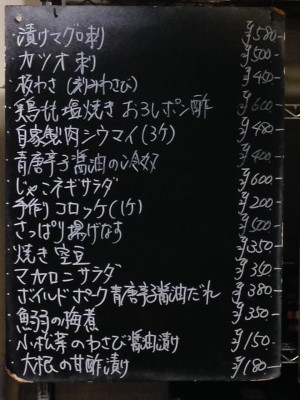 ・漬けマグロ刺 ¥580-
・カツオ刺 ¥500-
・板わさ（刻みわさび） ¥450-
・鶏もも塩焼き おろしポン酢 ¥600-
・自家製肉シウマイ（3ケ） ¥480-
・青唐辛子醤油の冷奴 ¥400-
・じゃこネギサラダ ¥600-
・手作りコロッケ（1ケ） ¥200-
・さっぱり揚げなす ¥500-
・焼き空豆 ¥350-
・マカロニサラダ ¥350-
・ボイルドポーク青唐辛子醤油だれ ¥380-
・鰯の梅煮 ¥350-
・小松菜のわさび醤油漬け ¥150-
・大根の甘酢漬け ¥180-